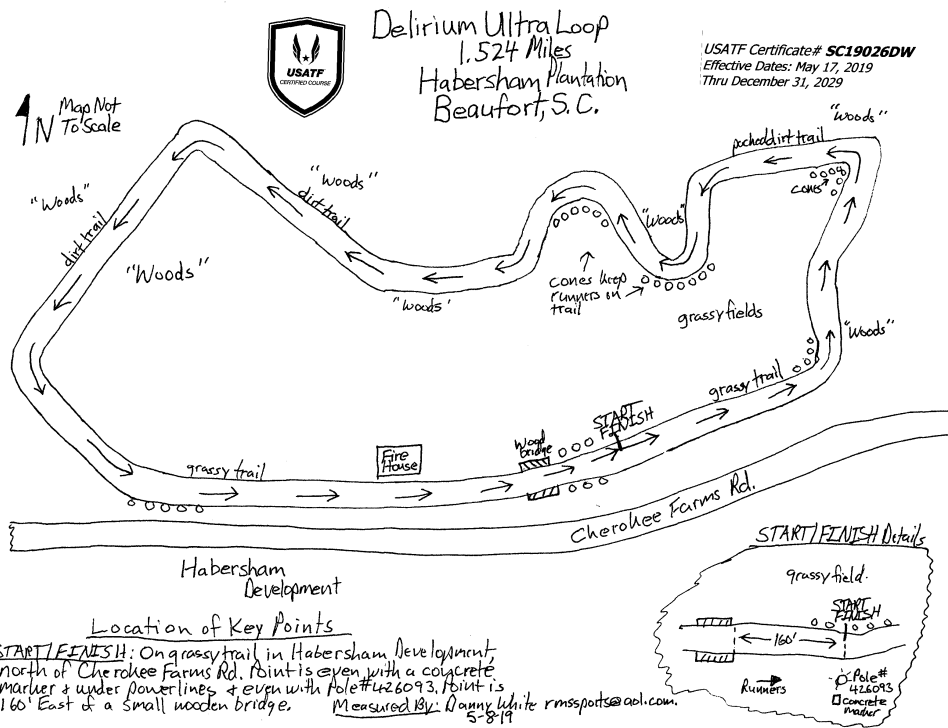 Delirium Ultra Loop
1.524 Miles
Habersham Plantation
Beaufort, S.C.
USATF
CERTIFIED COURSE
USATF Certificate# SC19026DW
Effective Dates: May 17, 2019
Thru December 31, 2029
N
Map Not
To Scale
"Woods"
packed dirt trail
cones
"Woods"
dirt trail
"Woods"
dirt trail
"Woods"
"Woods"
"Woods'
cones keep
runners on
trail
grassy fields
"Woods"
grassy trail
START
FINISH
Wood
bridge
Fire
House
grassy trail
Cherokee Farms Rd.
Habersham
Development
START/FINISH Details
grassy field.
START
FINISH
160'
Runners
Pole#
426093
concrete
marker
Location of Key Points
START/FINISH: On grassy trail in Habersham Development,
north of Cherokee Farms Rd. Point is even with a concrete
marker & under powerlines & even with Pole #426093. Point is
160' East of a small wooden bridge.
Measured By: Danny White rmssports@aol.com.
5-8-19